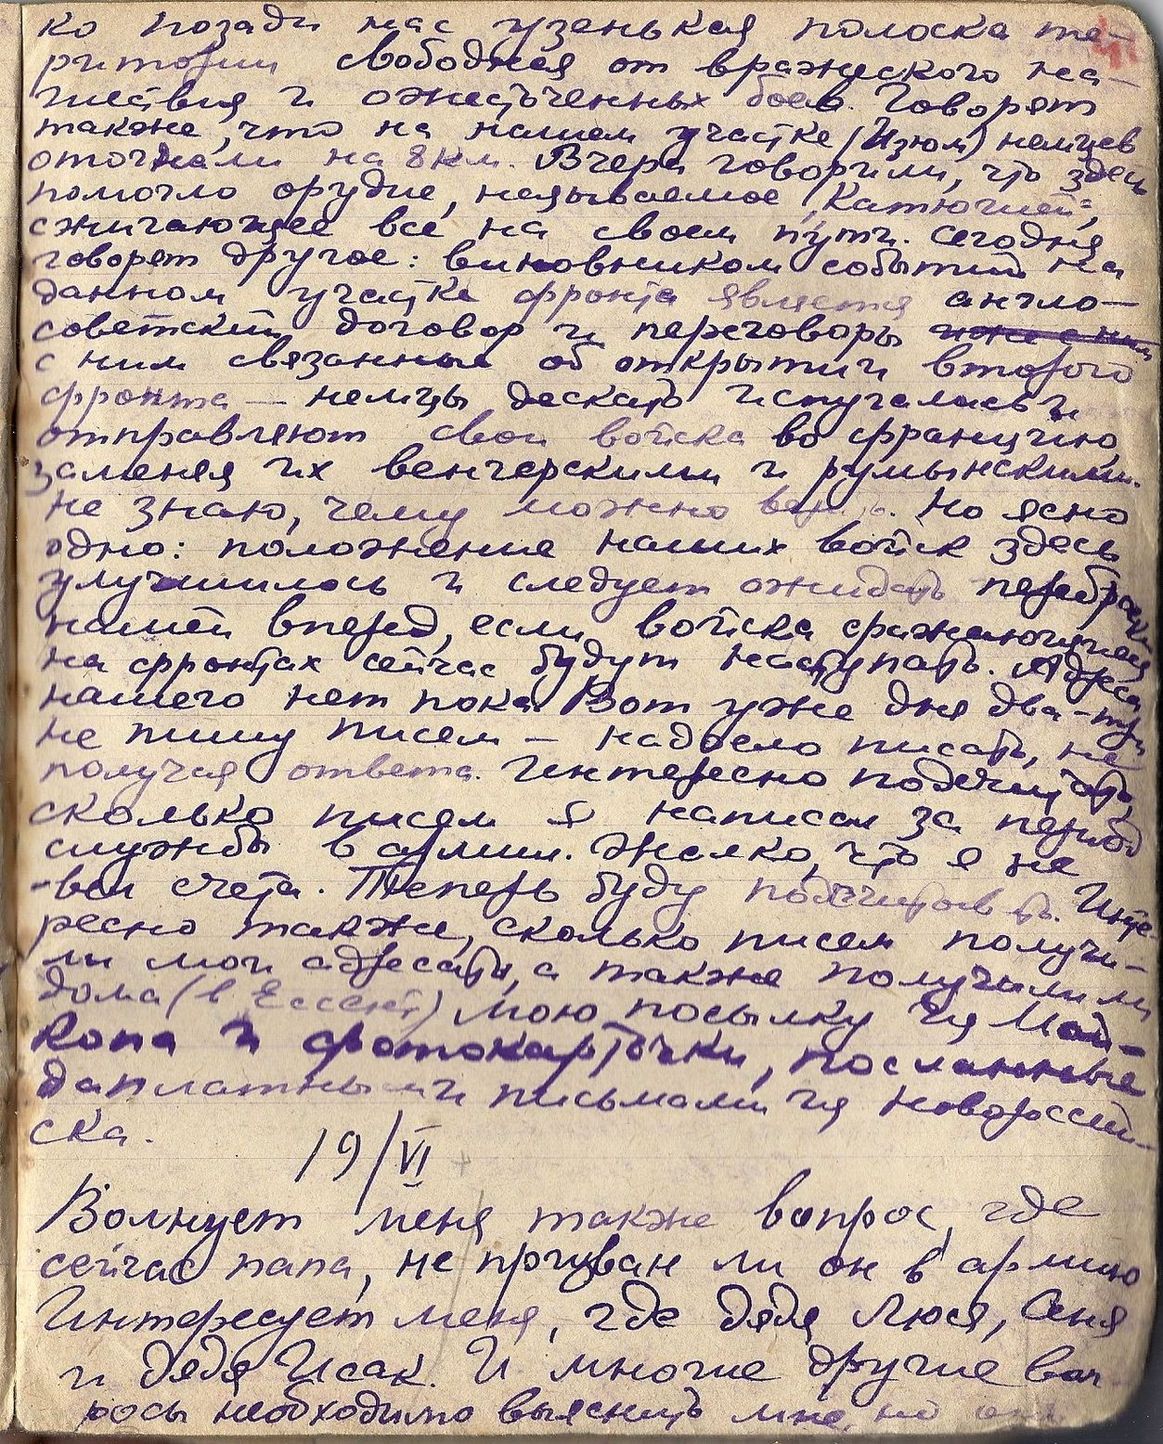 ко позади нас узенькая полоска те-
ритории свободная от вражеского на-
шествия и ожесточенных боев. Говорят
также, что на нашем участке (Изюм) немцев
отогнали на 8 км. Вчера говорили, что здесь
помогло орудие, называемое "Катюшей",
сжигающее все на своем пути. Сегодня
говорят другое: виновником событий на
данном участке фронта является англо-
советский договор и переговоры
с ним связанные об открытии второго
фронта — немцы дескать испугались и
отправляют свои войска во францию,
заменяя их венгерскими и румынскими.
Не знаю, чему можно верить. Но ясно
одно: положение наших войск здесь
улучшилось и следует ожидать переброски
нашей вперед, если войска сражающиеся
на фронтах сейчас будут наступать. Адреса
нашего нет пока. Вот уже дня два-три
не пишу писем — надоело писать, не
получая ответа. Интересно подсчитать,
сколько писем я написал за период
службы в армии. Жалко, что я не
-вел счета. Теперь буду подсчитывать. Инте-
ресно также, сколько писем получи-
ли мои адресаты, а также получили ли
дома (в Ессент) мою посылку из Май-
копа и фотокарточки, посланные
даплатными письмами из Новоросий-
ска.
19/VI
Волнует меня также вопрос, где
сейчас папа, не призван ли он в армию
Интересует меня, где дядя Люся, Сеня
и дядя Исак. И многие другие воп-
росы необходимо выяснить мне, но